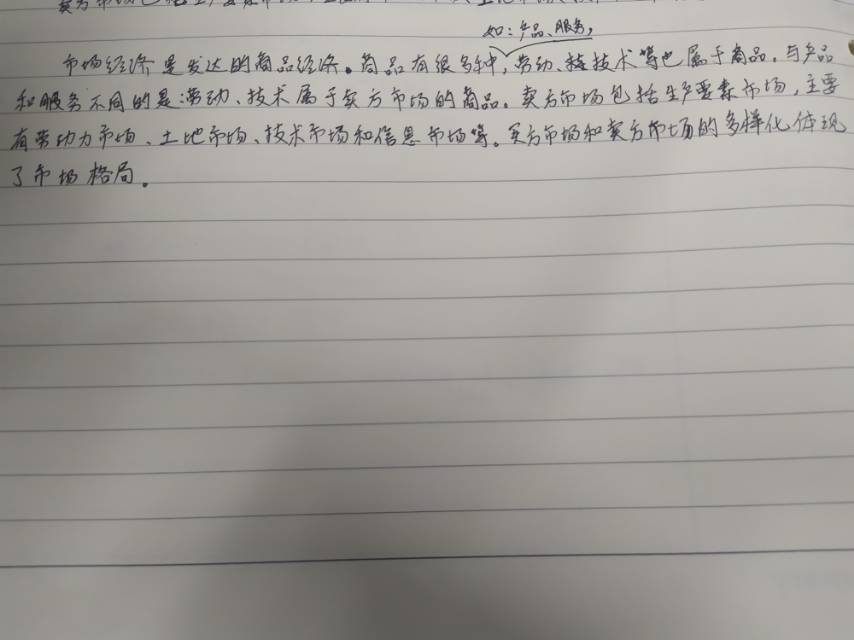 如：产品、服务，
市场经济是发达的商品经济。商品有很多种，劳动、技术等也属于商品。与产品
和服务不同的是：劳动、技术属于卖方市场的商品。卖方市场包括生产要素市场，主要
有劳动力市场、土地市场、技术市场和信息市场等。买方市场和卖方市场的多样化体现
了市场格局。